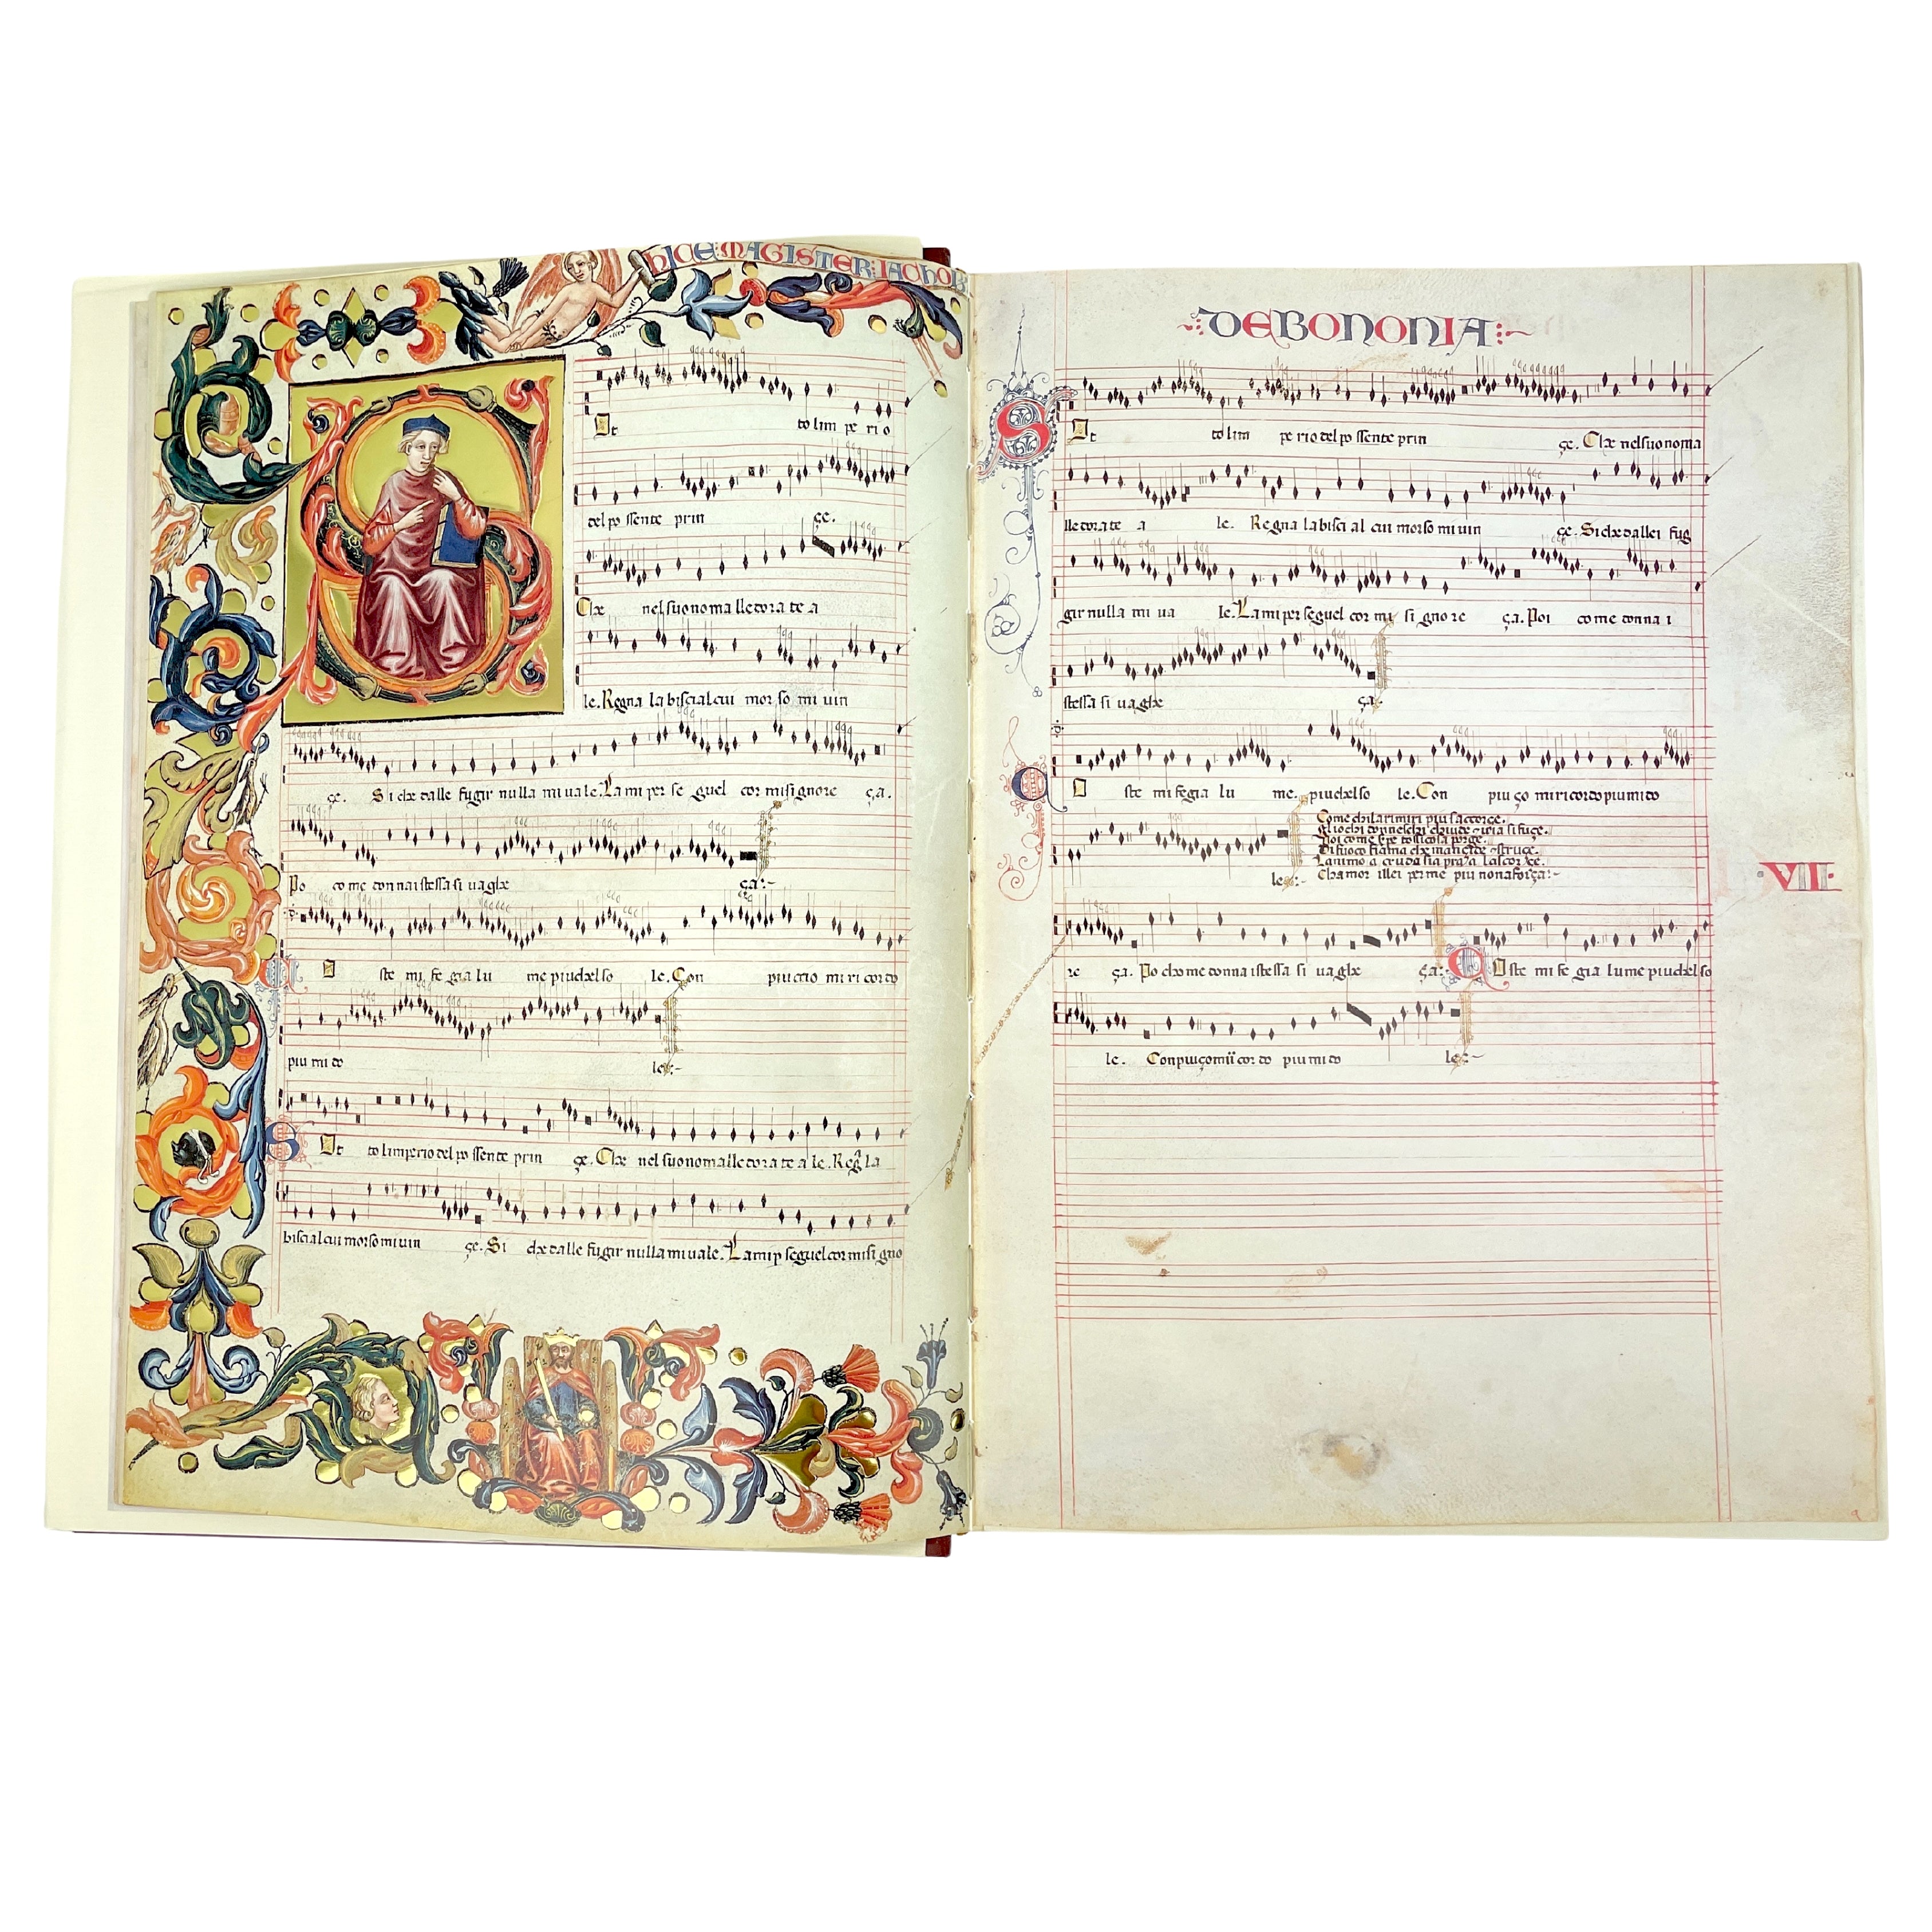 HIC E MAGISTER IACHOB
Ot to lim pe rio
del po ssente prin çe.
Che nel suo nom a lle dora te a
le. Regna la biscia l cui mor so mi vin
çe. Si che dalle fugir nulla mi vale. La mi per se guel cor mi signore ça.
Po co me donna i stessa si vaghe ça:~
O ste mi fe gia lu me piu chel so le. Con piu cio mi ri cordo
piu mi do le:~
S Ot to limperio del po ssente prin çe. Che nel suo nom alle dora te a le. Reg la
biscia l cui morso mi vin çe. Si che dalle fugir nulla mi vale. La mi p seguel cor mi si gno
DE BONONIA
S Ot to lim pe rio del po ssente prin çe. Che nel suo noma
lle dora te a le. Regna la bisci al cui morso mi vin çe. Si che dallei fug
gir nulla mi va le. La mi per seguel cor mi si gno re ça. Poi co me donna i
stessa si vaghe ça:
O ste mi fe gia lu me. piu chel so le. Con piu ço mi ricordo piu mi do
Come chi la rimiri piu saccorge.
Poi come
le:~ Chamor illei per me piu non a força:~
VII
re ça. Po che me donna istessa si vaghe ça: O ste mi fe gia lume piu chel so
le. Con piu ço mi cor do piu mi do le:~